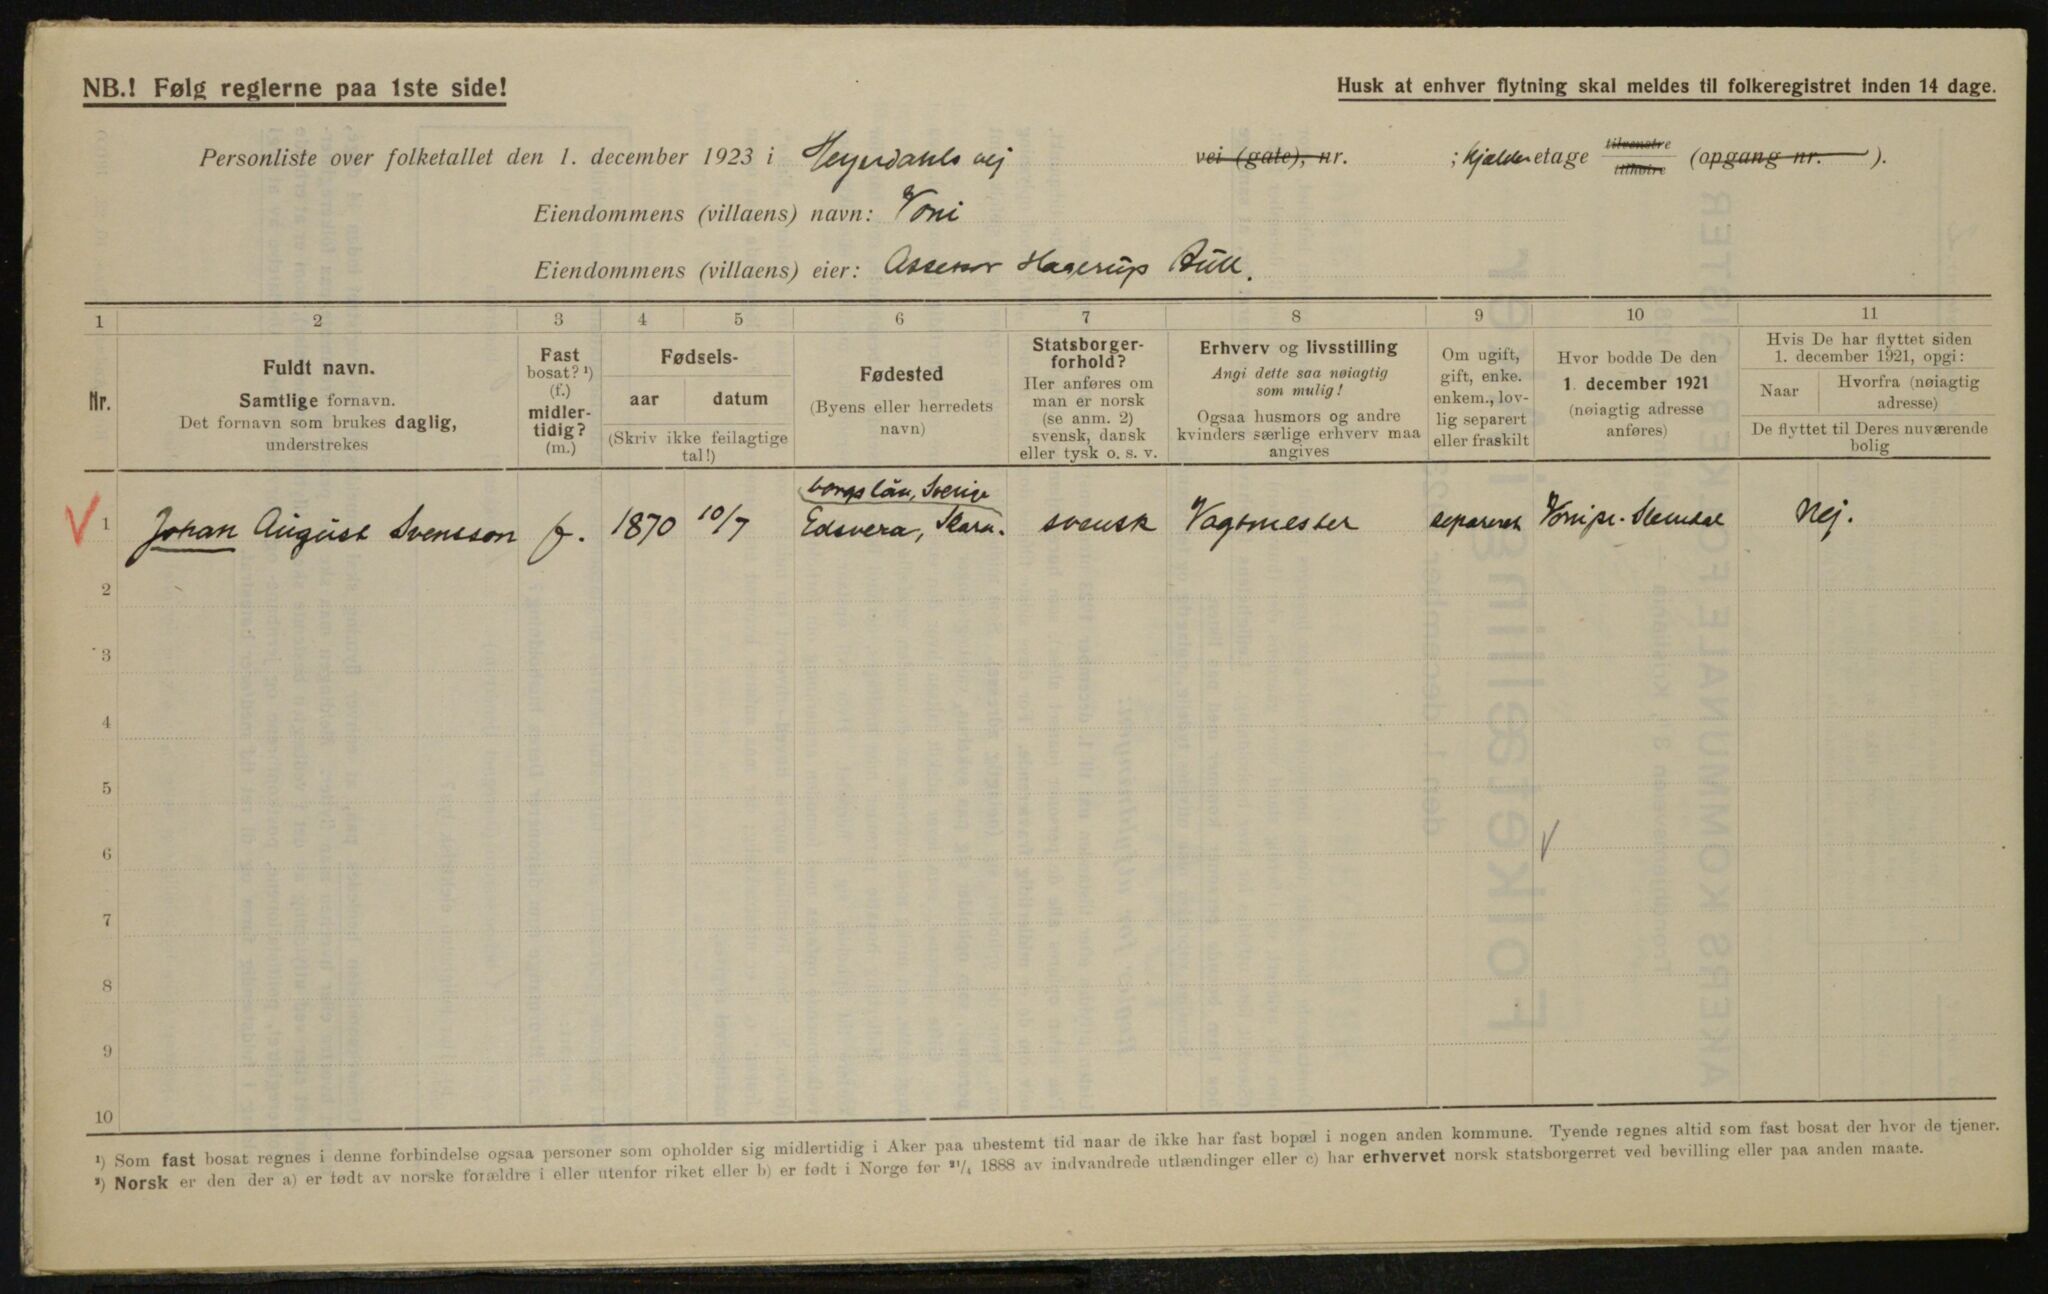 NB.! Følg reglerne paa 1ste side!
Husk at enhver flytning skal meldes til folkeregistret inden 14 dage.
Personliste over folketallet den 1. december 1923 i Heyerdahls vej vei (gate), nr. ; Kjælder etage tilvenstre tilhøire (opgang nr. ).
Eiendommens (villaens) navn: Voni
Eiendommens (villaens) eier: Assessor Hagerup Bull.
1 2 3 4 5 6 7 8 9 10 11
Nr.
Fuldt navn.
Samtlige fornavn.
Det fornavn som brukes daglig,
understrekes
Fast
bosat? ¹)
(f.)
midler-
tidig?
(m.)
Fødsels-
aar datum
(Skriv ikke feilagtige
tal!)
Fødested
(Byens eller herredets
navn)
Statsborger-
forhold?
Her anføres om
man er norsk
(se anm. 2)
svensk, dansk
eller tysk o. s. v.
Erhverv og livsstilling
Angi dette saa nøiagtig
som mulig!
Ogsaa husmors og andre
kvinders særlige erhverv maa
angives
Om ugift,
gift, enke.
enkem., lov-
lig separert
eller fraskilt
Hvor bodde De den
1. december 1921
(nøiagtig adresse
anføres)
Hvis De har flyttet siden
1. december 1921, opgi:
Naar Hvorfra (nøiagtig
adresse)
De flyttet til Deres nuværende
bolig
borgslän, Sverige
1 Johan August Svensson f. 1870 10/7 Edsvera, Skara- svensk Vagtmester separeret Voni pr. Slemdal Nej.
2
3
4
5
6
7
8
9
10
¹) Som fast bosat regnes i denne forbindelse ogsaa personer som opholder sig midlertidig i Aker paa ubestemt tid naar de ikke har fast bopæl i nogen anden kommune. Tyende regnes altid som fast bosat der hvor de tjener.
²) Norsk er den der a) er født av norske forældre i eller utenfor riket eller b) er født i Norge før ²¹/₄ 1888 av indvandrede utlændinger eller c) har erhvervet norsk statsborgerret ved bevilling eller paa anden maate.